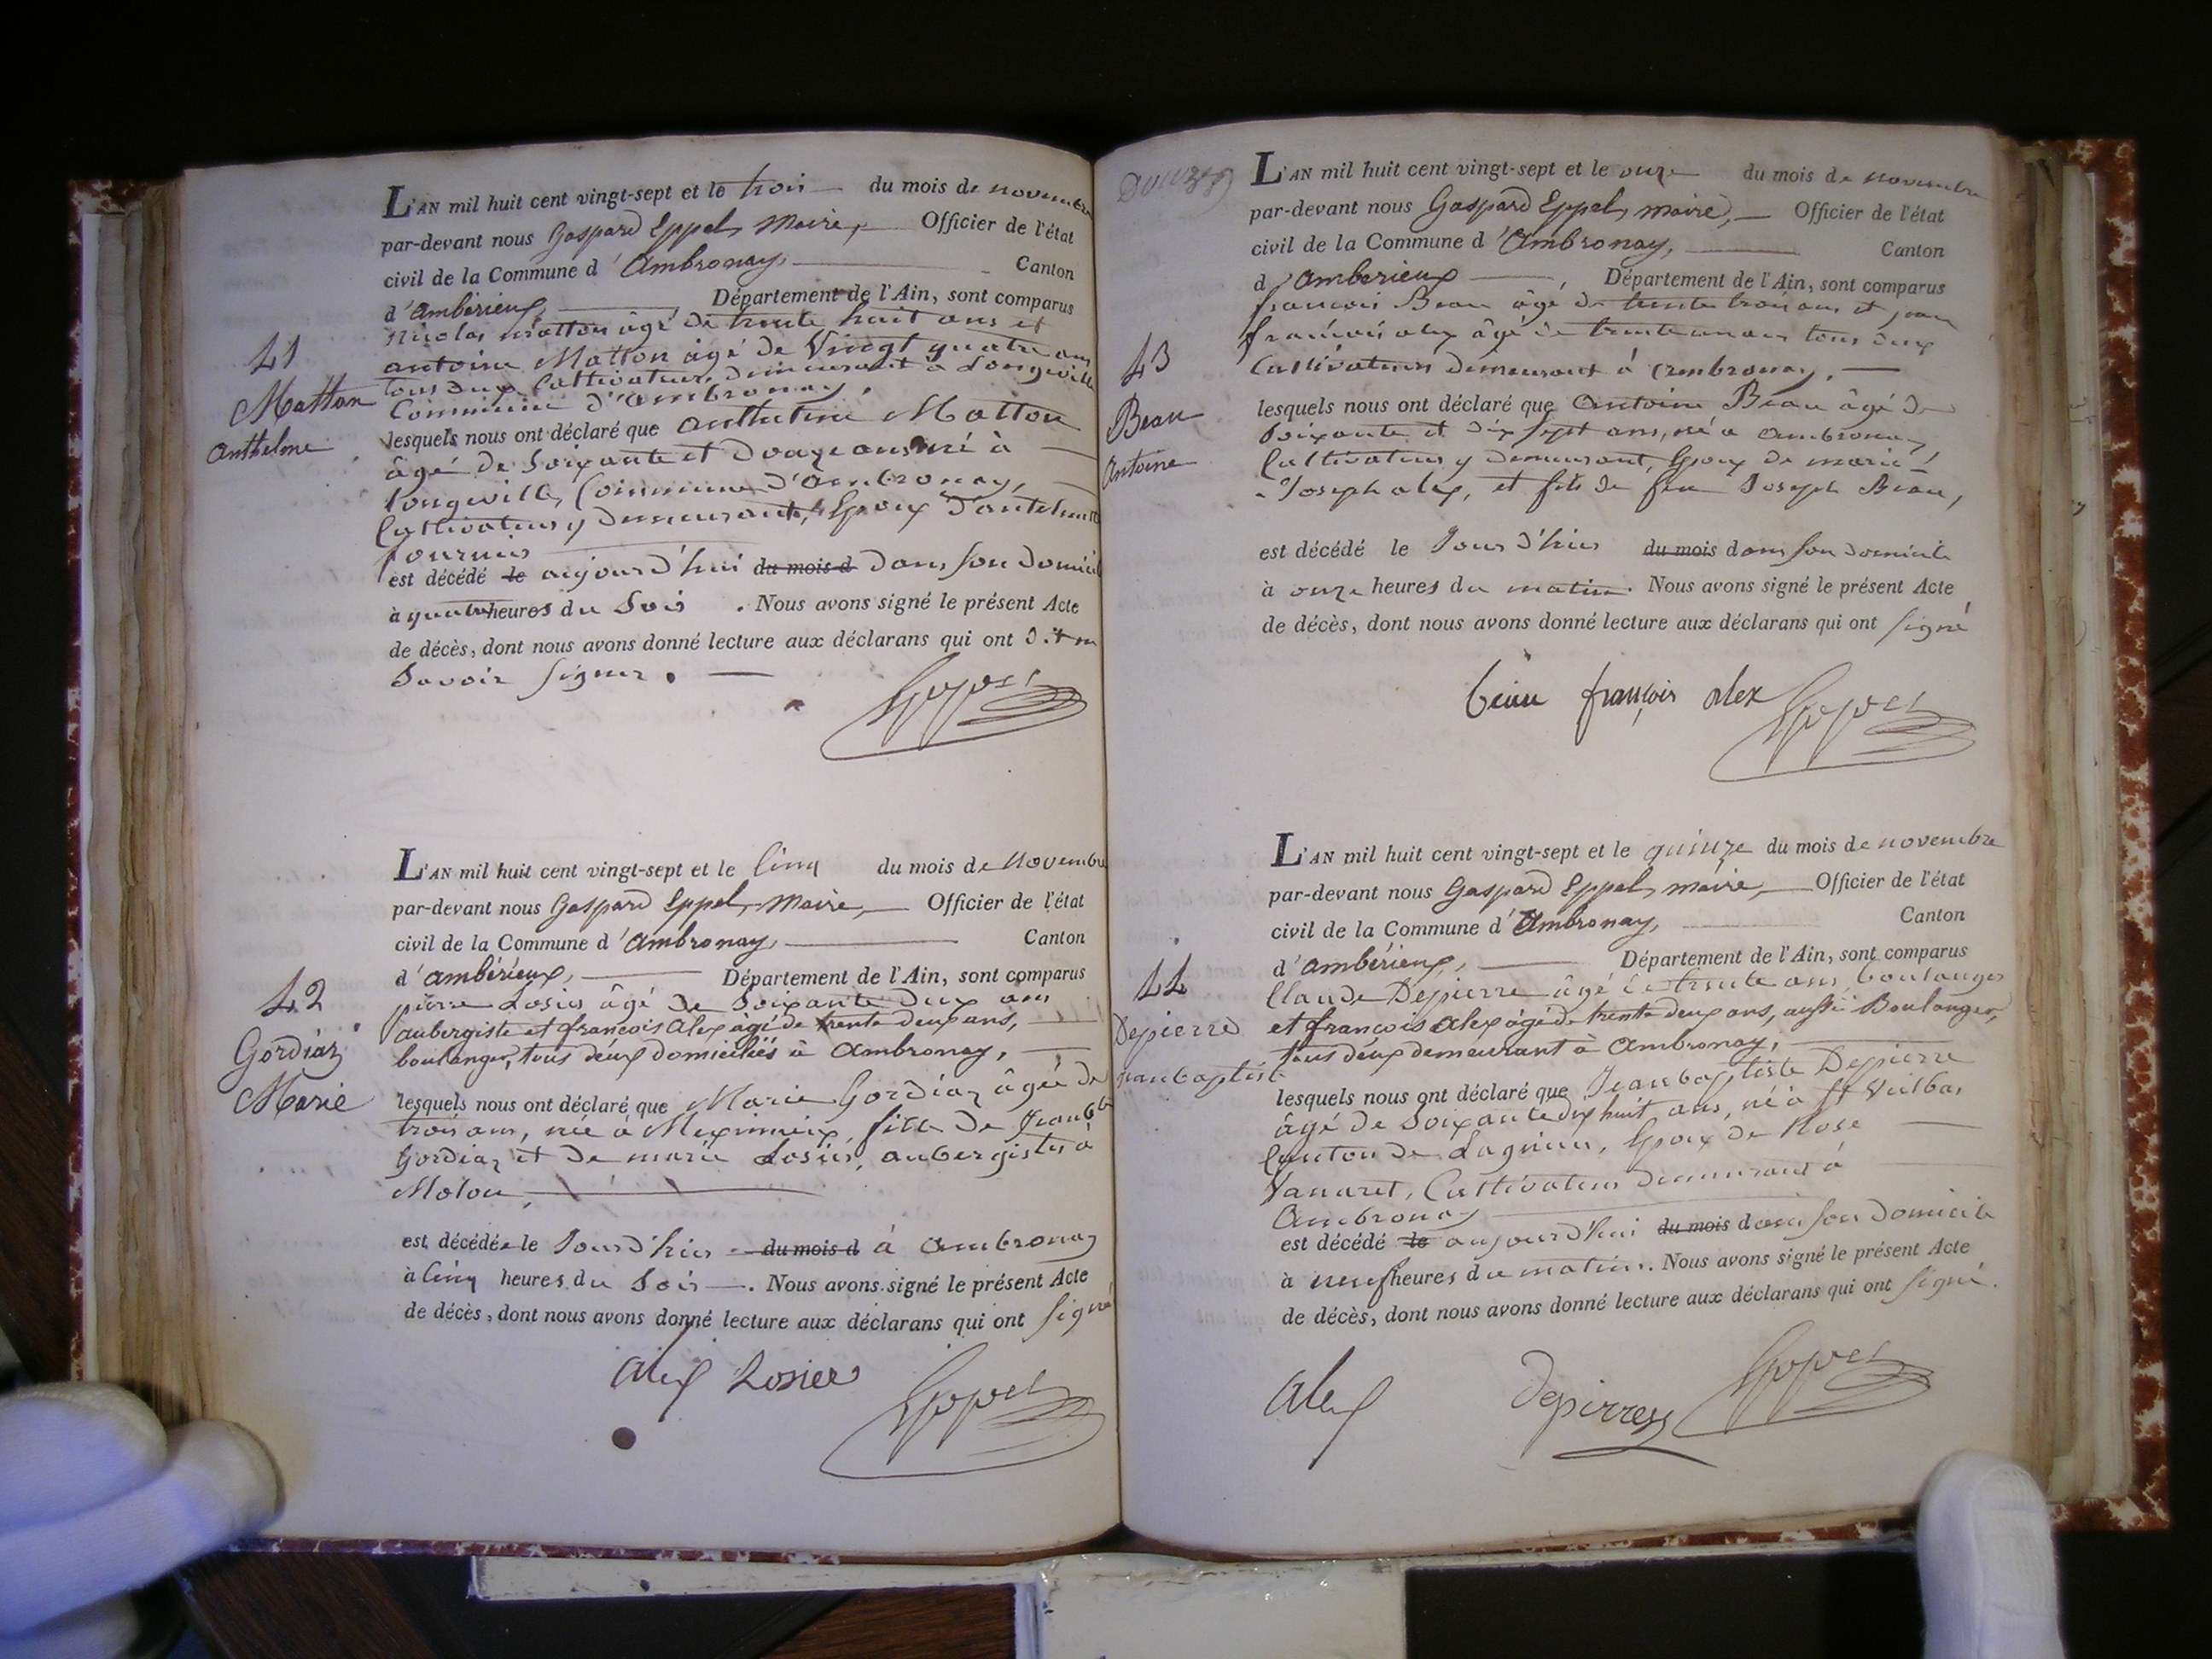 L'AN mil huit cent vingt-sept et le trois du mois de novembre
par-devant nous Gaspard Eppel, Maire, Officier de l'état
civil de la Commune d'Ambronay, Canton
d'ambérieux, Département de l'Ain, sont comparus
Nicolas Matton âgé de trente huit ans et
antoine Matton âgé de Vingt quatre ans
tous deux Cultivateurs demeurant à Longeville
Commune d'Ambronay,
41
Matton
Anthelme
lesquels nous ont déclaré que anthelme Matton
âgé de Soixante et douze ans né à
longeville, Commune d'Ambronay,
Cultivateur y demeurant, Epoux d'antelmette
fournier
est décédé le aujourd'hui du mois d dans son domicile
à quatre heures du Soir. Nous avons signé le présent Acte
de décès, dont nous avons donné lecture aux déclarans qui ont dit ne
Savoir signer.
Eppel
L'AN mil huit cent vingt-sept et le Cinq du mois de Novembre
par-devant nous Gaspard Eppel, Maire, Officier de l'état
civil de la Commune d'Ambronay, Canton
d'ambérieux, Département de l'Ain, sont comparus
pierre Losier âgé de Soixante deux ans
aubergiste et françois Alex âgé de trente deux ans,
boulanger, tous deux domiciliés à Ambronay,
42
Gordiaz
Marie
lesquels nous ont déclaré que Marie Gordiaz âgée de
trois ans, née à Meximieux, fille de Jean Bte
Gordiaz et de marie Losier, aubergistes à
Molon,
est décédée le Jour d'hier du mois d à Ambronay
à Cinq heures du Soir. Nous avons signé le présent Acte
de décès, dont nous avons donné lecture aux déclarans qui ont signé
Alex Losier Eppel
L'AN mil huit cent vingt-sept et le onze du mois de novembre
par-devant nous Gaspard Eppel, maire, Officier de l'état
civil de la Commune d'Ambronay, Canton
d'amberieux Département de l'Ain, sont comparus
francois Beau âgé de trente trois ans et jean
françois alex âgé de trente un ans tous deux
Cultivateurs demeurant à Ambronay,
43
Beau
Antoine
lesquels nous ont déclaré que Antoine Beau âgé de
Soixante et dix sept ans, né à Ambronay
Cultivateur y demeurant, Epoux de marie
Joseph alex, et fils de feu Joseph Beau,
est décédé le Jour d'hier du mois dans son domicile
à onze heures du matin. Nous avons signé le présent Acte
de décès, dont nous avons donné lecture aux déclarans qui ont signé
beau françois alex Eppel
L'AN mil huit cent vingt-sept et le quinze du mois de novembre
par-devant nous Gaspard Eppel, maire, Officier de l'état
civil de la Commune d'Ambronay, Canton
d'ambérieux, Département de l'Ain, sont comparus
Claude Depierre âgé de trente ans, boulanger
et françois Alex âgé de trente deux ans, aussi Boulanger,
tous deux demeurant à Ambronay,
44
Depierre
jean baptiste
lesquels nous ont déclaré que Jean baptiste Depierre
âgé de Soixante dix huit ans, né à St Vulbas
Canton de Lagnieu, Epoux de Rose
Vanaret, Cultivateur demeurant à
Ambronay
est décédé le aujourd'hui du mois dans son Domicile
à neuf heures du matin. Nous avons signé le présent Acte
de décès, dont nous avons donné lecture aux déclarans qui ont signé.
Alex Depierre Eppel